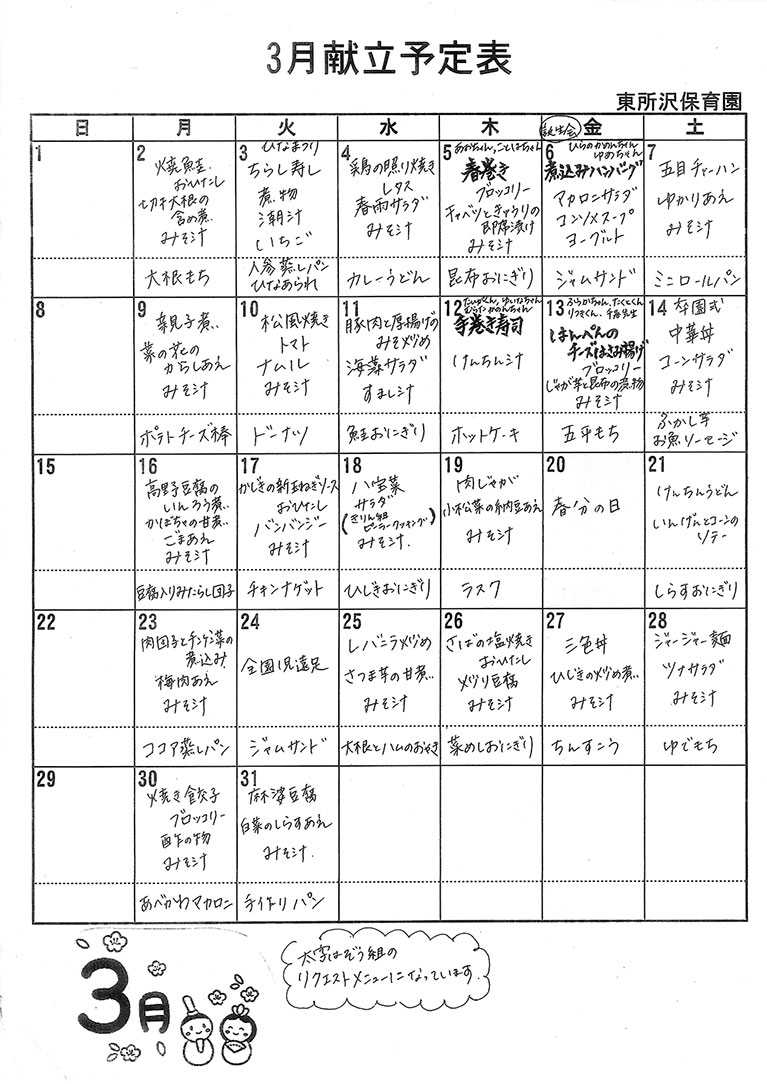 3月献立予定表
東所沢保育園
日 月 火 水 木 金 土
誕生会
1
2
焼魚鮭
おひたし
切干大根の
含め煮
みそ汁
大根もち
3
ひなまつり
ちらし寿し
煮物
潮汁
いちご
人参蒸しパン
ひなあられ
4
鶏の照り焼き
レタス
春雨サラダ
みそ汁
カレーうどん
5
あおちゃん、ことはちゃん
春巻き
ブロッコリー
キャベツときゅうりの
即席漬け
みそ汁
昆布おにぎり
6
ひらのかのんちゃん
ゆめちゃん
煮込みハンバーグ
マカロニサラダ
コンソメスープ
ヨーグルト
ジャムサンド
7
五目チャーハン
ゆかりあえ
みそ汁
ミニロールパン
8
9
親子煮
菜の花の
からしあえ
みそ汁
ポテトチーズ棒
10
松風焼き
トマト
ナムル
みそ汁
ドーナツ
11
豚肉と厚揚げの
みそ炒め
海藻サラダ
すまし汁
鮭おにぎり
12
たいがくん、ゆいなちゃん
むらたかのんちゃん
手巻き寿司
けんちん汁
ホットケーキ
13
ふうかちゃん、たくとくん
りつきくん、千春先生
はんぺんの
チーズはさみ揚げ
ブロッコリー
じゃが芋と昆布の煮物
みそ汁
五平もち
14
卒園式
中華丼
コーンサラダ
みそ汁
ふかし芋
お魚ソーセージ
15
16
高野豆腐の
いんろう煮
かぼちゃの甘煮
ごまあえ
みそ汁
豆腐入りみたらし団子
17
かじきの新玉ねぎソース
おひたし
バンバンジー
みそ汁
チキンナゲット
18
八宝菜
サラダ
(きりん組
ピーラークッキング)
みそ汁
ひじきおにぎり
19
肉じゃが
小松菜の納豆あえ
みそ汁
ラスク
20
春分の日
21
けんちんうどん
いんげんとコーンの
ソテー
しらすおにぎり
22
23
肉団子とチンゲン菜の
煮込み
梅肉あえ
みそ汁
ココア蒸しパン
24
全園児遠足
ジャムサンド
25
レバニラ炒め
さつま芋の甘煮
みそ汁
大根とハムのおやき
26
さばの塩焼き
おひたし
炒り豆腐
みそ汁
菜めしおにぎり
27
三色丼
ひじきの炒め煮
みそ汁
ちんすこう
28
ジャージャー麺
ツナサラダ
みそ汁
ゆでもち
29
30
焼き餃子
ブロッコリー
酢の物
みそ汁
あべかわマカロニ
31
麻婆豆腐
白菜のしらすあえ
みそ汁
手作りパン
3月
太字はぞう組の
リクエストメニューになっています。